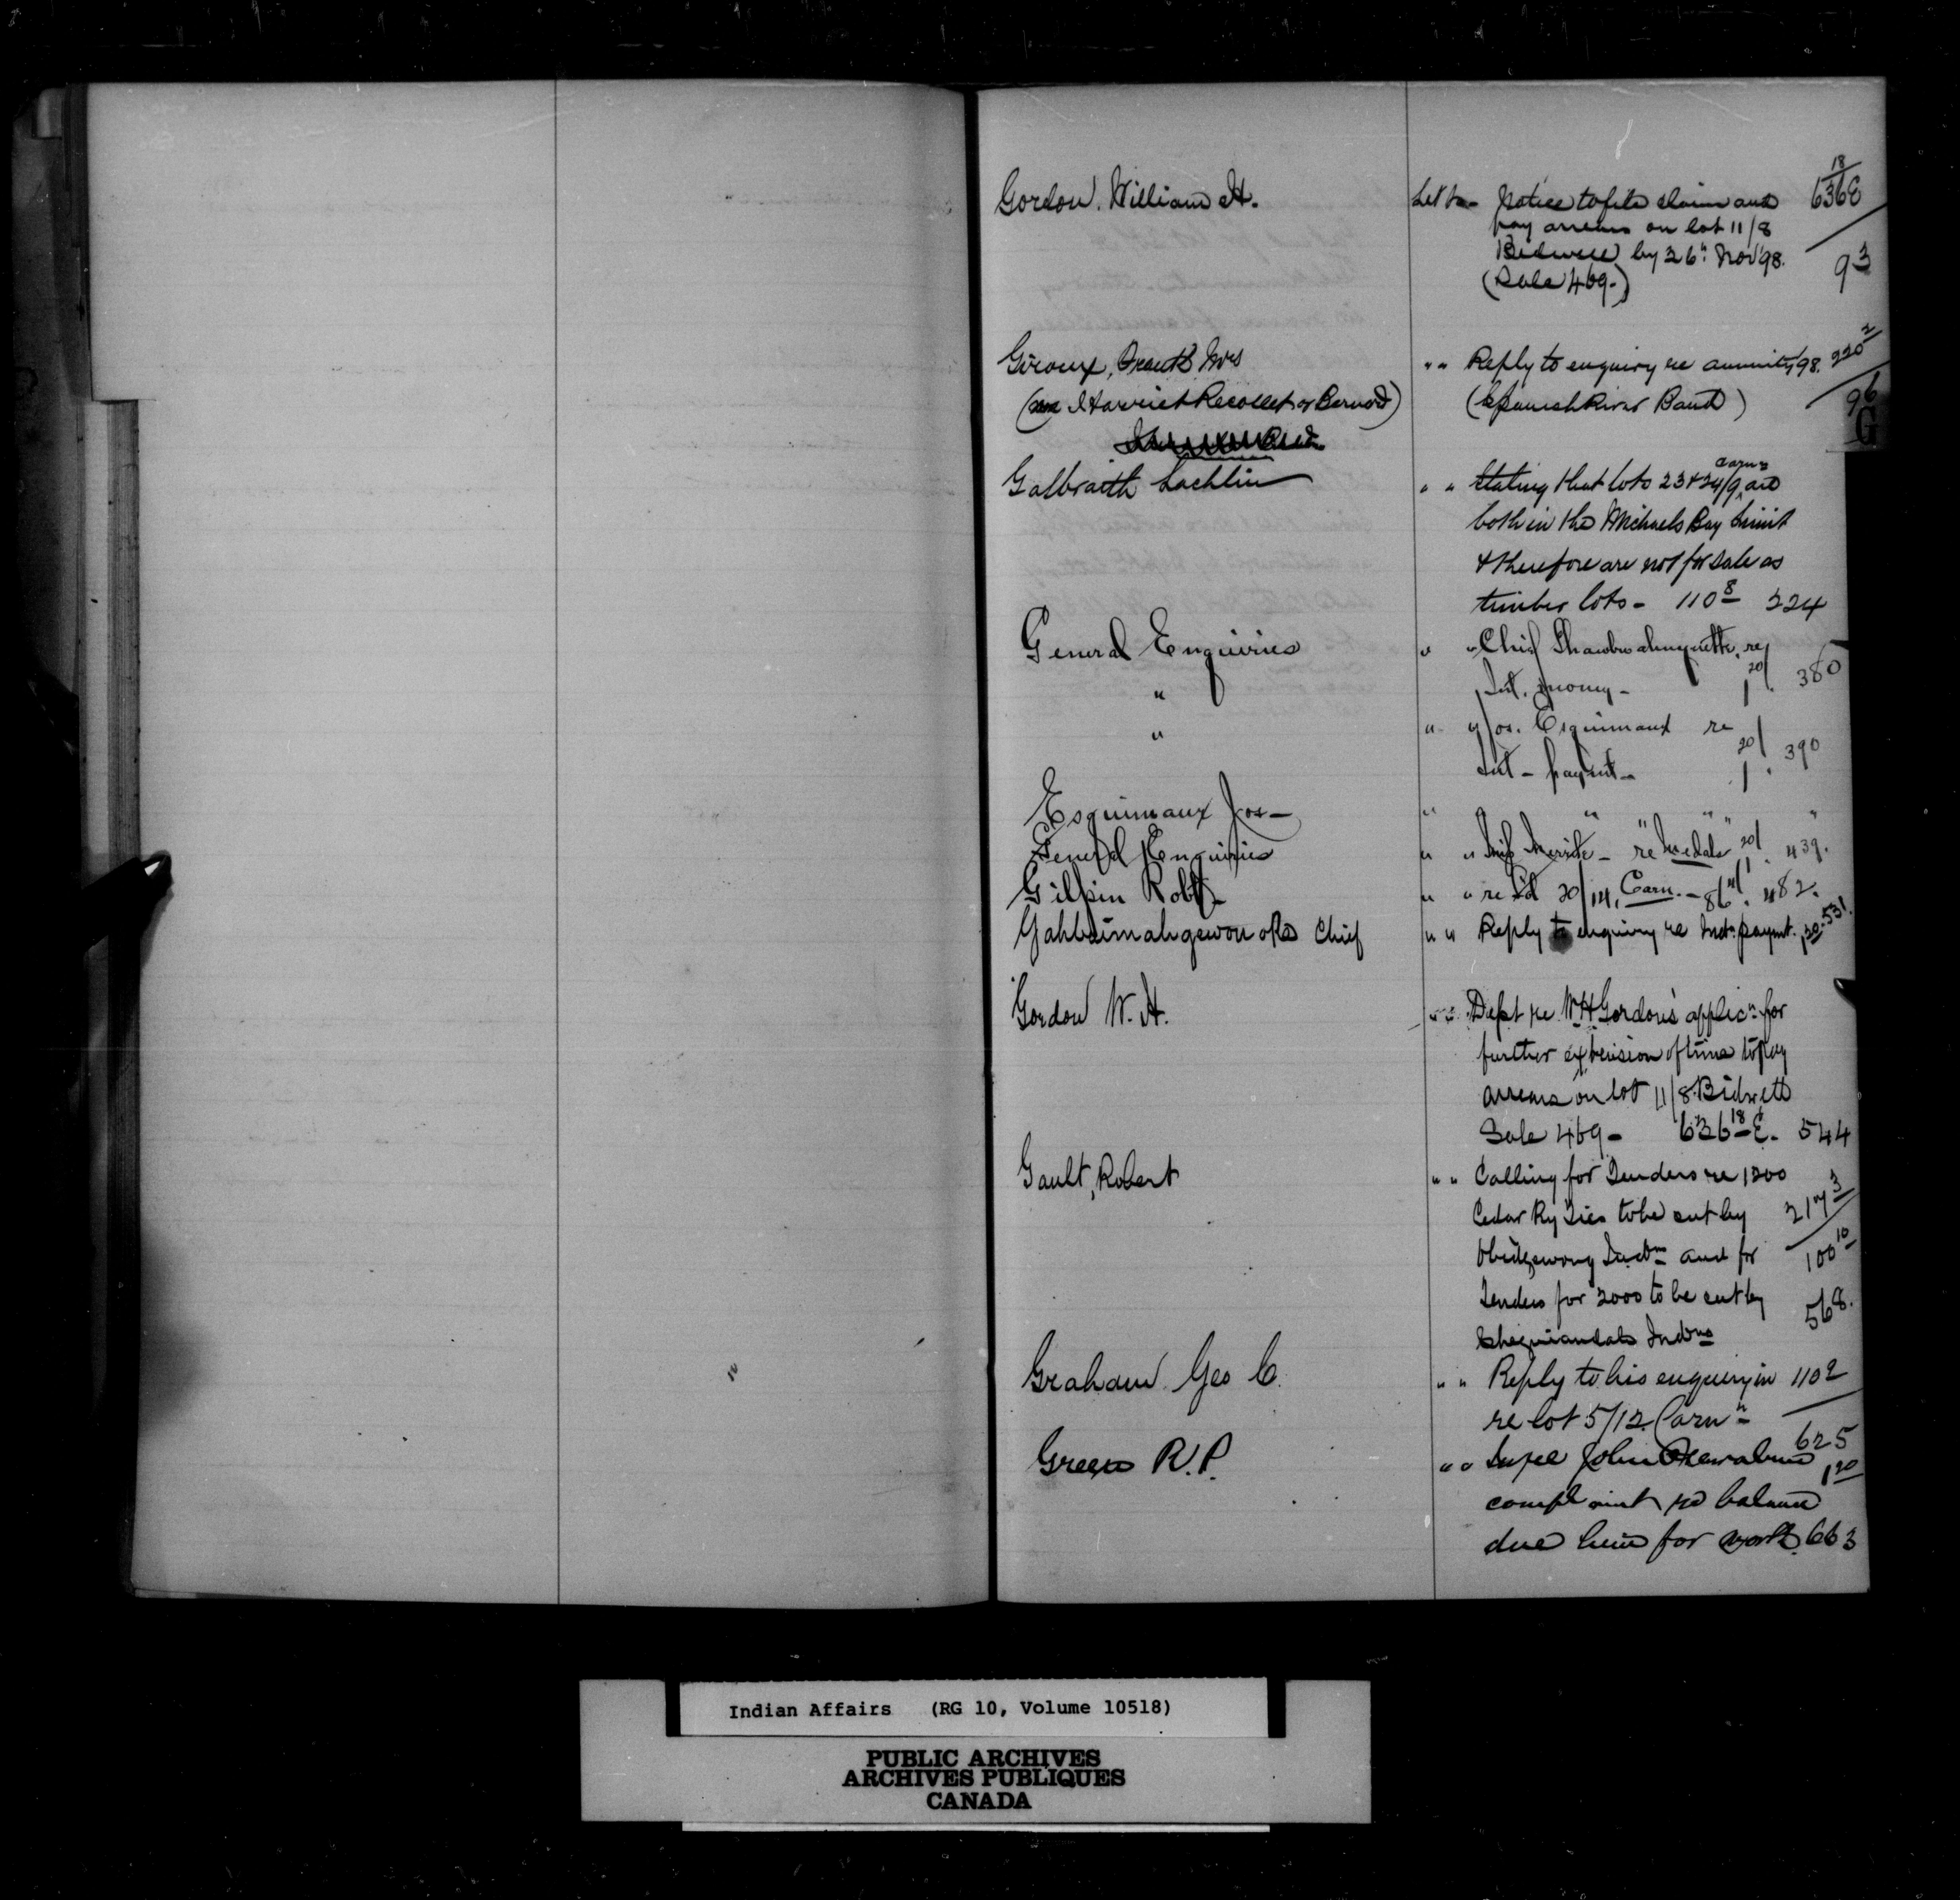 Gordon. William H. Let to - Notice to file claim and 636 18/E
pay arrears on lot 11/8
Bidwell by 26" Nov '98. 93
(Sale 469-)
Giroux, Frank Mrs " " Reply to enquiry re annuity '98. 220 2
(Harriet Recollet or Bernard) (Spanish River Band) 96
G
Galbraith Lachlin " " Stating that lots 23 & 24/9 Carn are
both in the Michaels Bay limit
& therefore are not for sale as
timber lots - 110 8 224
General Enquiries " " Chief re
" Int. money - 1 20. 380
" " " Jos. Esquimaux re
Int - payment - 1 20. 390
Esquimaux Jos - " " " " "
General Enquiries " " re Medals 20/1. 439.
Gilpin Robt - " " re 20/14, Carn. - 86 4. 482.
Gahbaimahgewon Chief " " Reply to enquiry re Int. paymt. 1 20. 531.
Gordon W. H. " " Dept re W H Gordon's applicn for
further extension of time to pay
arrears on lot 11/8 Bidwell
Sale 469 - 636 18 E. 544
Gault, Robert " " Calling for Tenders re 1200
Cedar Ry Ties to be cut by 217 3
Obidgewong Indns and for 100 10
Tenders for 2000 to be cut by 568.
Sheguiandah Indns
Graham Geo C. " " Reply to his enquiry in 110 2
re lot 5/12 Carn
625
Green R.P. " " John 1 20
complaint re balance
due him for work. 663
Indian Affairs (RG 10, Volume 10518)
PUBLIC ARCHIVES
ARCHIVES PUBLIQUES
CANADA